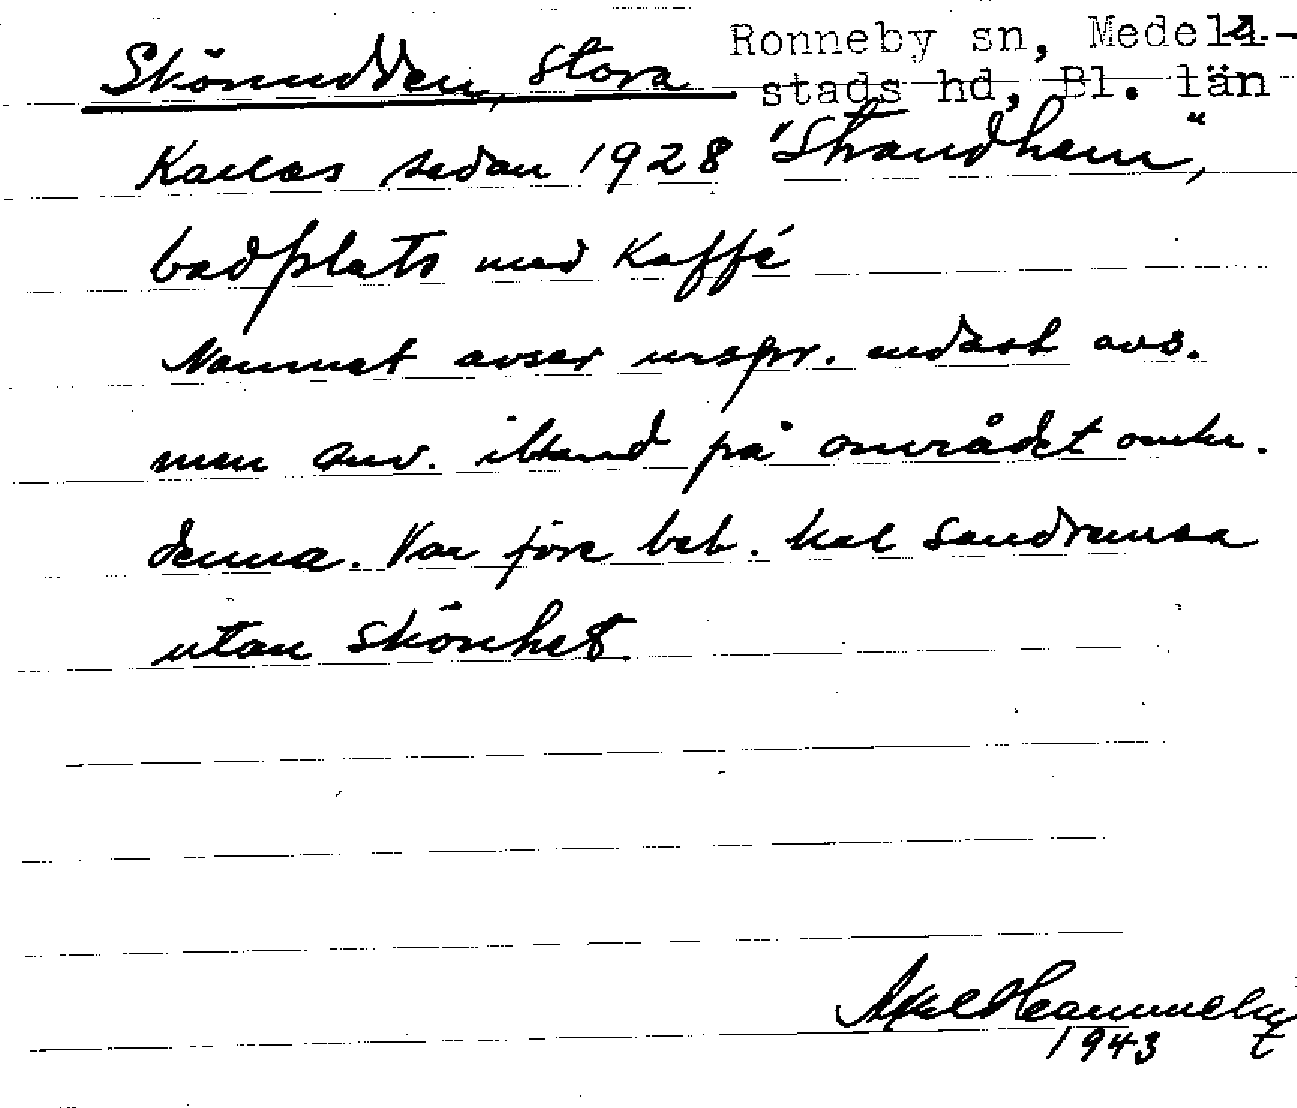 Skönudden, Stora
Ronneby sn, Medel-
stads hd, Bl. län
Kallas sedan 1928 "Strandhem",
badplats med Kaffé
Namnet avser urspr. endast avs.
men anv. ibland på området omkr.
denna. Var före beb. kal sandremsa
utan skönhet
Axel
1943